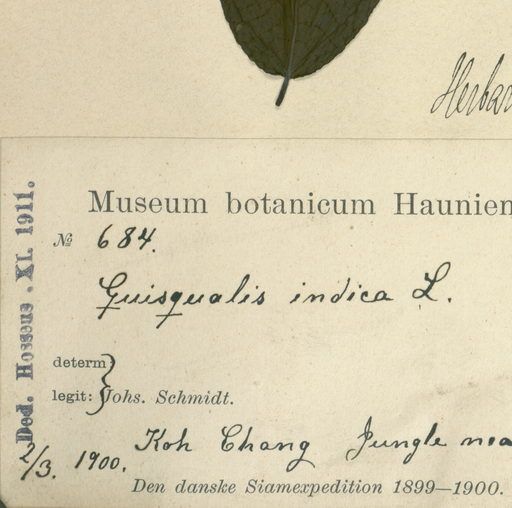 Herbar
Museum botanicum Haunien
№ 684.
Quisqualis indica L.
determ:
legit: Johs. Schmidt.
Koh Chang Jungle nea
2/3. 1900.
Den danske Siamexpedition 1899—1900.
Ded. Hosseus. XI. 1911.